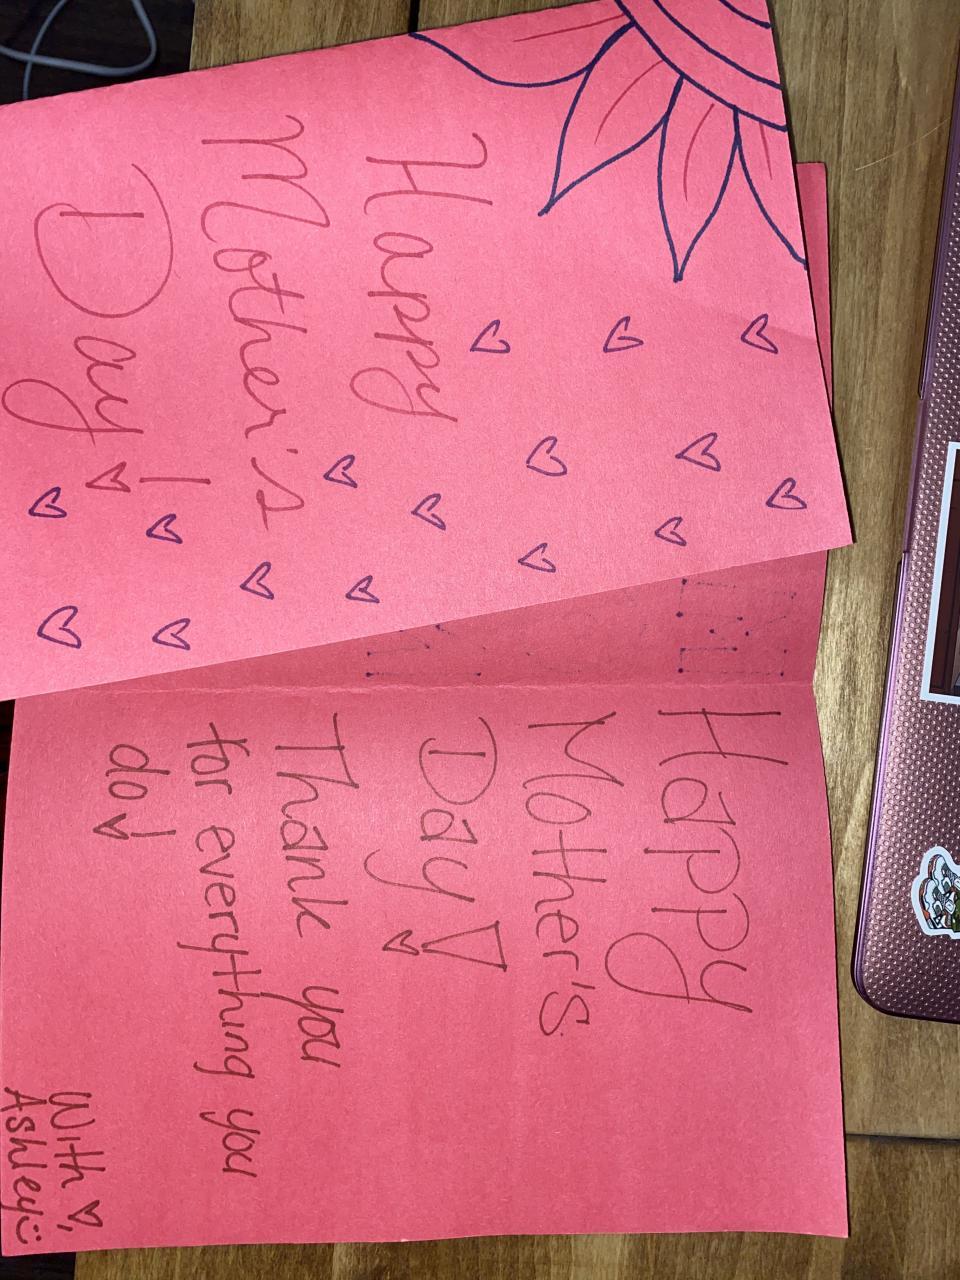 Happy
Mother's
Day!
Happy
Mother's
Day!
Thank you
for everything you
do!
With ♡,
Ashley :)